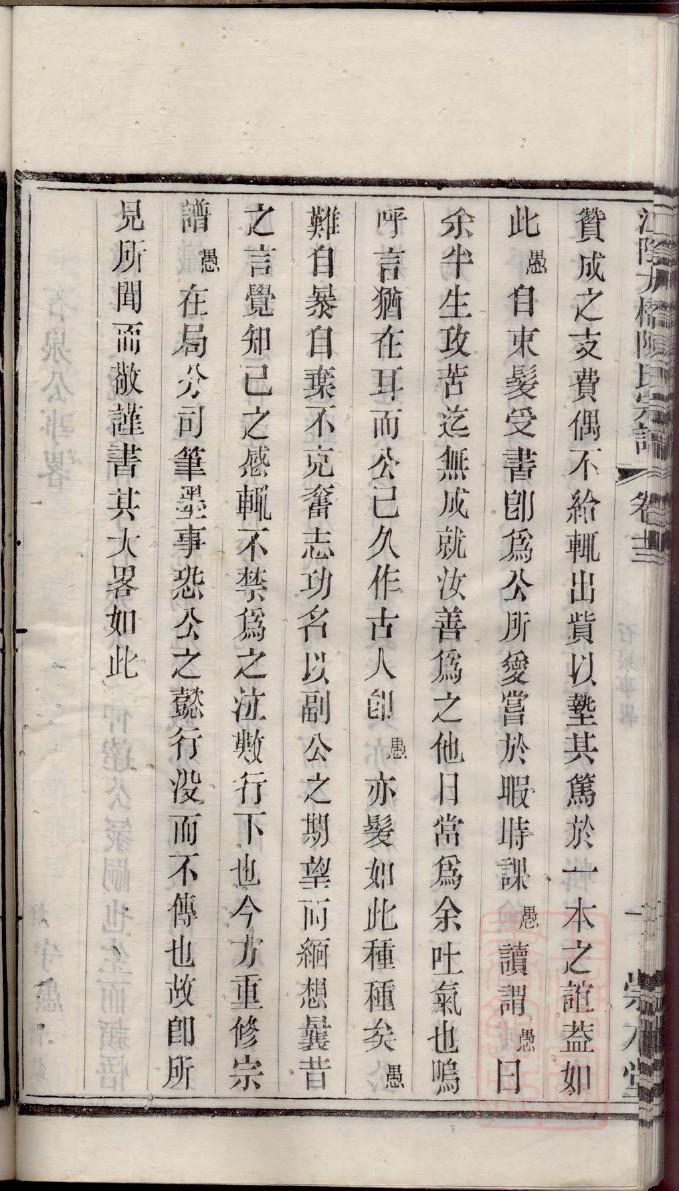 江陰九橋陳氏宗譜 卷十三 崇本堂
贊成之支費偶不給輒出貲以墊其篤於一本之誼葢如
此愚自束髮受書卽爲公所愛嘗於暇時課愚讀謂愚曰
余半生攻苦迄無成就汝善爲之他日當爲余吐氣也嗚
呼言猶在耳而公已久作古人卽愚亦髮如此種種矣愚
難自暴自棄不克奮志功名以副公之期望而緬想曩昔
之言覺知己之感輒不禁爲之泣數行下也今方重修宗
譜愚在局分司筆墨事恐公之懿行没而不傳也故卽所
見所聞而敬謹書其大畧如此